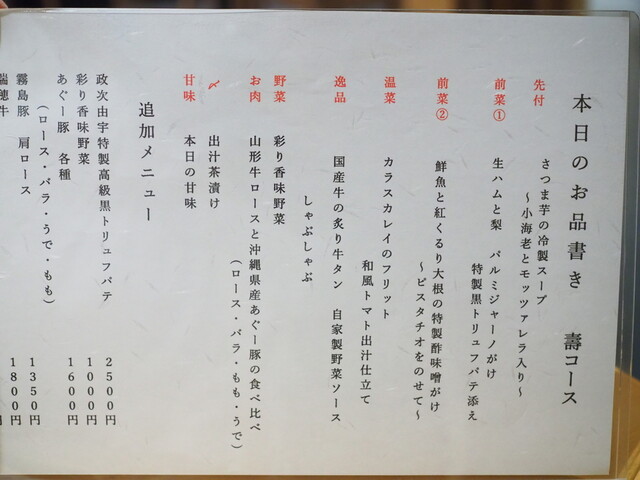 本日のお品書き　壽コース
先付　さつま芋の冷製スープ
～小海老とモッツァレラ入り～
前菜①　生ハムと梨　パルミジャーノがけ
特製黒トリュフパテ添え
前菜②　鮮魚と紅くるり大根の特製酢味噌がけ
～ピスタチオをのせて～
温菜　カラスカレイのフリット
和風トマト出汁仕立て
逸品　国産牛の炙り牛タン　自家製野菜ソース
しゃぶしゃぶ
野菜　彩り香味野菜
お肉　山形牛ロースと沖縄県産あぐー豚の食べ比べ
（ロース・バラ・もも・うで）
〆　出汁茶漬け
甘味　本日の甘味
追加メニュー
政次由宇特製高級黒トリュフパテ　2500円
彩り香味野菜　1000円
あぐー豚　各種　1600円
（ロース・バラ・うで・もも）
霧島豚　肩ロース　1350円
瑞穂牛　1800円